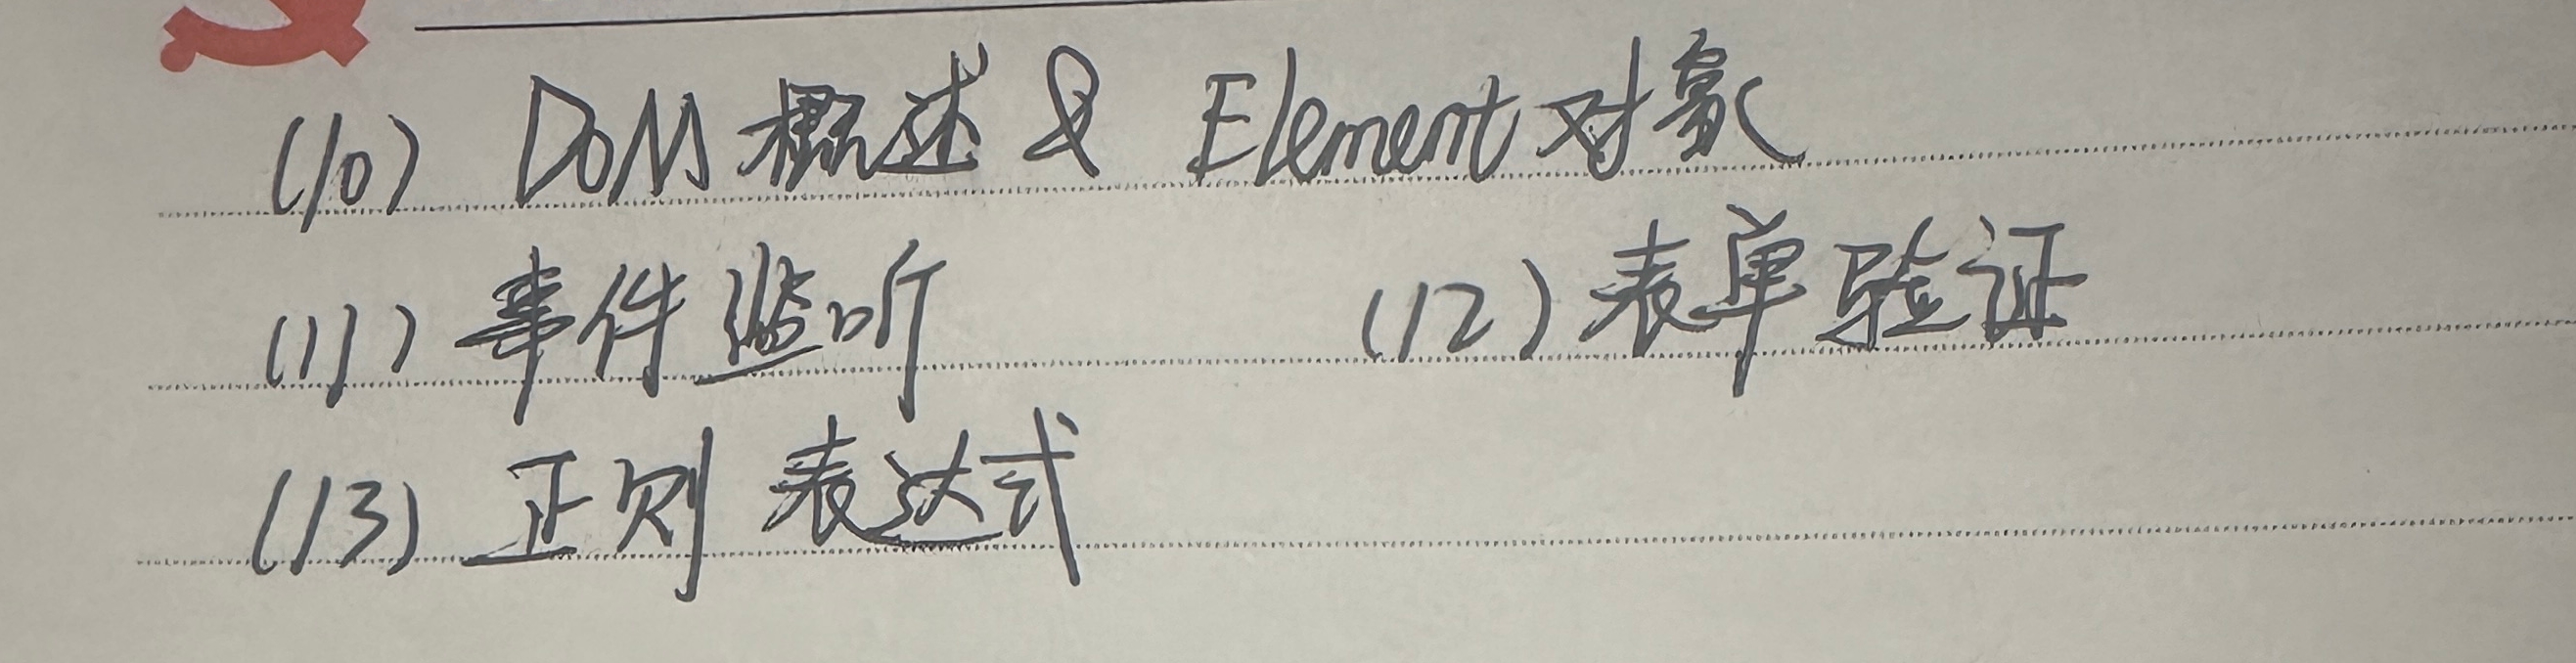 (10) DOM概述 & Element对象
(11) 事件监听 (12) 表单验证
(13) 正则表达式